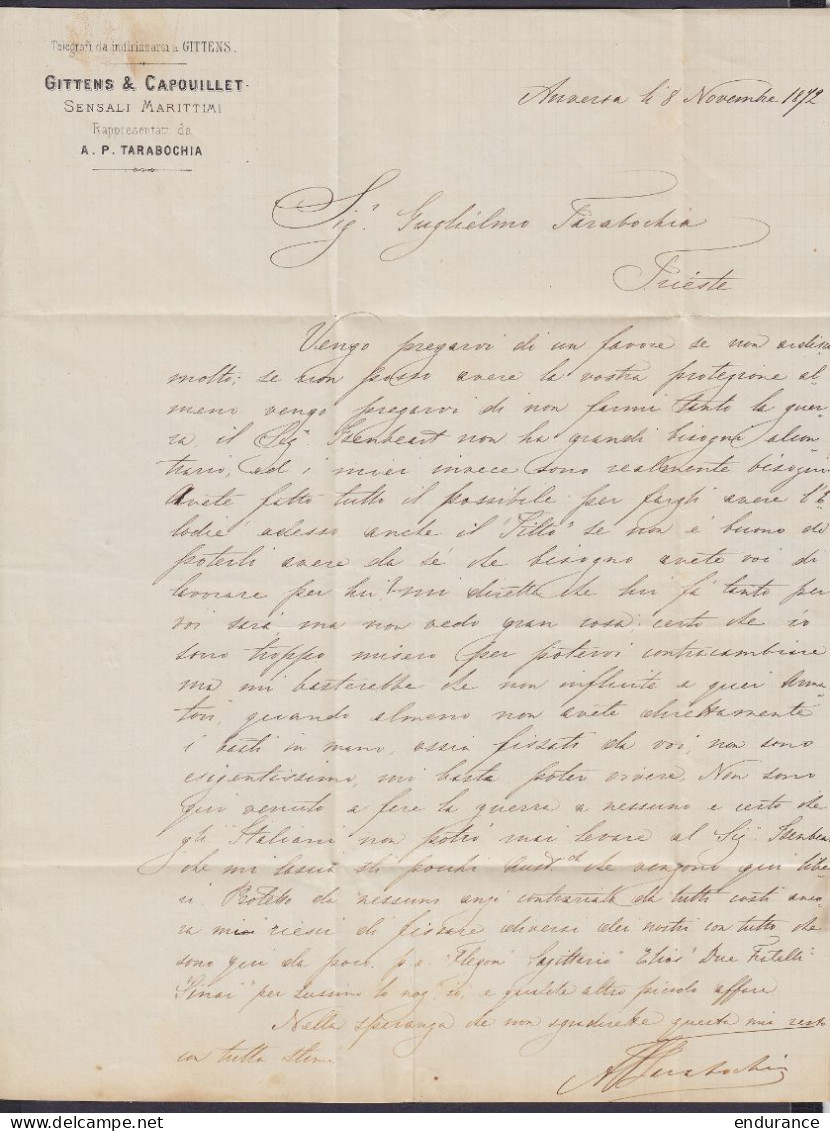 Telegrafi da indirizzarsi a GITTENS.
GITTENS & CAPOUILLET
SENSALI MARITTIMI
Rappresentati da
A. P. TARABOCHIA
Anversa li 8 Novembre 1872
Sigr. Guglielmo Tarabochia
Trieste
Vengo pregarvi di un favore se non ardisco
molto; se non posso avere la vostra protezione al-
meno vengo pregarvi di non farmi tanto la guer-
ra, il Sigr. Isenbeart non ha grandi bisogni alcon-
trario, ed i miei invece sono realmente bisogni
Avete fatto tutto il possibile per fargli avere l'E
lodie" adesso anche il "Tilto" se non é buono di
poterli avere da sé che bisogno avete voi di
lavorare per lui? mi diretta che lui fá tanto per
voi sará, ma non vedo gran cosa; certo che io
sono troppo misero per potervi contracambiare
ma mi basterebbe che non influite a quei Arma
tori, quando almeno non avete direttamente
i basti in mano, ossia fissati da voi, non sono
esigentissimo, mi basta poter vivere. Non sono
qui venuto a fere la guerra a nessuno e certo che
gli Italiani non potró mai levare al Sigr. Isenbea
che mi lascia sti pochi che vengono qui libe
ri. Protetto da nessuno anzi contrariato da tutti costi anco-
ra mi riesci di fissare diversi dei nostri con tutto che
sono qui da poco. p. e. "Flegon" Sagittario" "Elios" Due Fratelli
"Sinai" per Lussino e qualche altro piccolo affare
Nella speranza che non sgradirette questa mi resto
con tutta stima
A P Tarabochia
delcampe.net
endurance